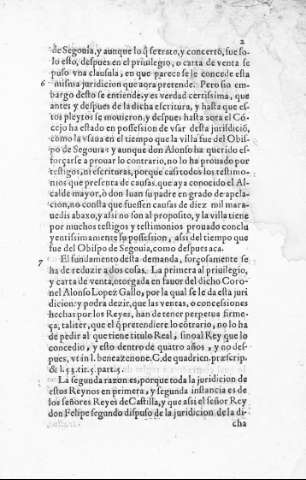 2
de Segouia, y aunque lo q̃ se trato, y concertò, fue so-
lo esto, despues en el priuilegio, o carta de venta se
puso vna clausula, en que parece se le concede esta
6 misma juridicion que aora pretende. Pero sin em
bargo desto se entiende, y es verdad certissima, que
antes y despues de la dicha escritura, y hasta que es-
tos pleytos se mouieron, y despues hasta aora el Cõ-
cejo ha estado en possession de vsar desta jurisdiciõ,
como la vsaua en el tiempo que la villa fue del Obis-
po de Segouia: y aunque don Alonso ha querido es-
forçarse a prouar lo contrario, no lo ha prouado por
testigos, ni escrituras, porque casi todos los testimo-
nios que presenta de causas, que aya conocido el Al-
calde mayor, ò don Iuan su padre en grado de apela-
cion, no consta que fuessen causas de diez mil mara-
uedis abaxo, y assi no son al proposito, y la villa tiene
por muchos testigos y testimonios prouado conclu
yentissimamente su possession, assi del tiempo que
fue del Obispo de Segouia, como despues aca.
7 El fundamento desta demanda, forçosamente se
ha de reduzir a dos cosas. La primera al priuilegio,
y carta de venta, otorgada en fauor del dicho Coro-
nel Alonso Lopez Gallo, por la qual se le da esta juri
dicion: y podra dezir, que las ventas, o concessiones
hechas por los Reyes, han de tener perpetua firme-
ça, taliter, que el q̃ pretendiere lo cõtrario, no lo ha
de pedir al que tiene titulo Real, sino al Rey que lo
concedio, y esto dentro de quatro años, y no des-
pues, vt in l. bene a zenone. C. de quadrien. præscrip.
& l. 53. tit. 5. part. 5.
La segunda razon es, porque toda la juridicion de
estos Reynos en primera, y segunda instancia es de
los señores Reyes de Castilla, y que assi el señor Rey
don Felipe segundo dispuso de la juridicion de la di-
cha